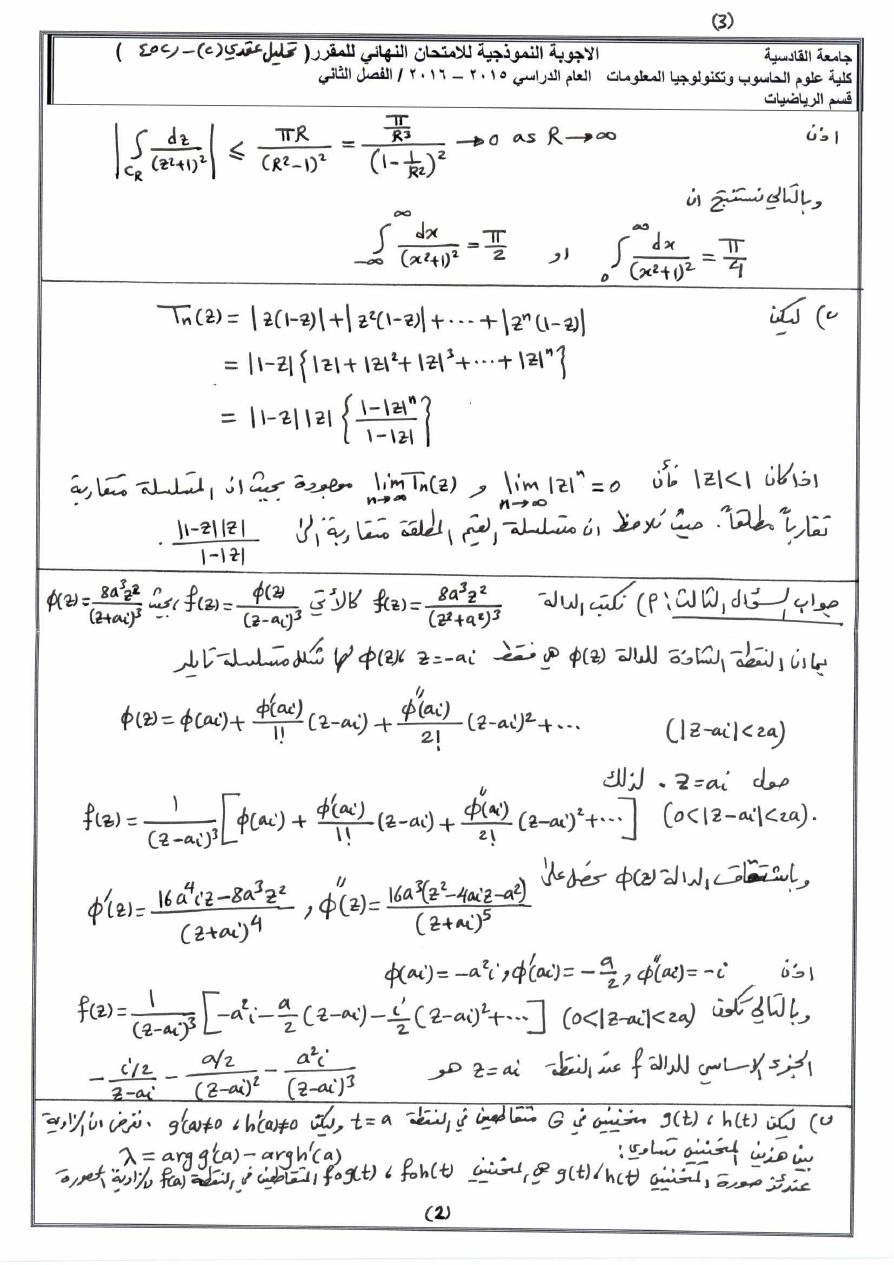 (3)
جامعة القادسية الاجوبة النموذجية للامتحان النهائي للمقرر( تحليل عقدي(٢) – ر٤٥٢ )
كلية علوم الحاسوب وتكنولوجيا المعلومات العام الدراسي ٢٠١٥ – ٢٠١٦ / الفصل الثاني
قسم الرياضيات
اذن |∫_{C_R} dz/(z²+1)²| ≤ πR/(R²-1)² = (π/R³)/(1-1/R²)² → 0 as R→∞
وبالتالي نستنتج ان
∫_{-∞}^{∞} dx/(x²+1)² = π/2 او ∫_0^{∞} dx/(x²+1)² = π/4
ب) ليكن Tn(z) = |z(1-z)| + |z²(1-z)| + ⋯ + |zⁿ(1-z)|
= |1-z| {|z| + |z|² + |z|³ + ⋯ + |z|ⁿ}
= |1-z| |z| {(1-|z|ⁿ)/(1-|z|)}
اذا كان |z|<1 فأن lim_{n→∞} |z|ⁿ = 0 و lim_{n→∞} Tn(z) موجودة بحيث ان المتسلسلة متقاربة
تقارباً مطلقاً. حيث نلاحظ ان متسلسلة القيم المطلقة متقاربة الى |1-z||z|/(1-|z|) .
جواب السؤال الثالث: أ) نكتب الدالة f(z) = 8a³z²/(z²+a²)³ كالآتي f(z) = φ(z)/(z-ai)³ ، بحيث φ(z) = 8a³z²/(z+ai)³
بما ان النقطة الشاذة للدالة φ(z) هي فقط z=-ai ، φ(z) لها شكل متسلسلة تايلر
φ(z) = φ(ai) + φ′(ai)/1! (z-ai) + φ″(ai)/2! (z-ai)² + ⋯ (|z-ai|<2a)
حول z=ai . لذلك
f(z) = 1/(z-ai)³ [φ(ai) + φ′(ai)/1! (z-ai) + φ″(ai)/2! (z-ai)² + ⋯] (0<|z-ai|<2a).
وباشتقاق الدالة φ(z) نحصل على
φ′(z) = (16a⁴iz-8a³z²)/(z+ai)⁴ , φ″(z) = 16a³(z²-4aiz-a²)/(z+ai)⁵
اذن φ(ai) = -a²i , φ′(ai) = -a/2 , φ″(ai) = -i
وبالتالي تكون f(z) = 1/(z-ai)³ [-a²i - a/2 (z-ai) - i/2 (z-ai)² + ⋯] (0<|z-ai|<2a)
الجزء الاساسي للدالة f عند النقطة z=ai هو - (i/2)/(z-ai) - (a/2)/(z-ai)² - a²i/(z-ai)³
ب) ليكن g(t) ، h(t) منحنيين في G متقاطعين في النقطة t=a وليكن h′(a)≠0 ، g′(a)≠0 . نفرض ان الزاوية
بين هذين المنحنيين تساوي: λ = arg g′(a) - arg h′(a)
عندئذ صورة المنحنيين g(t) ، h(t) هي المنحنيين foh(t) ، fog(t) المتقاطعين في النقطة f(a) والزاوية المحصورة
(2)